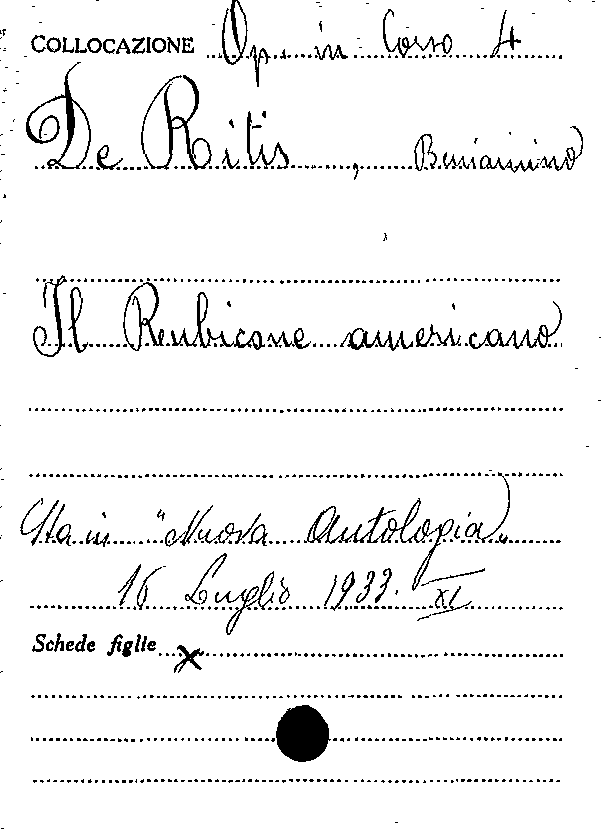 COLLOCAZIONE Op. in Corso 4
De Ritis, Beniamino
Il Rubicone americano
Sta in "Nuova Antologia"
16 Luglio 1933. XI
Schede figlie x